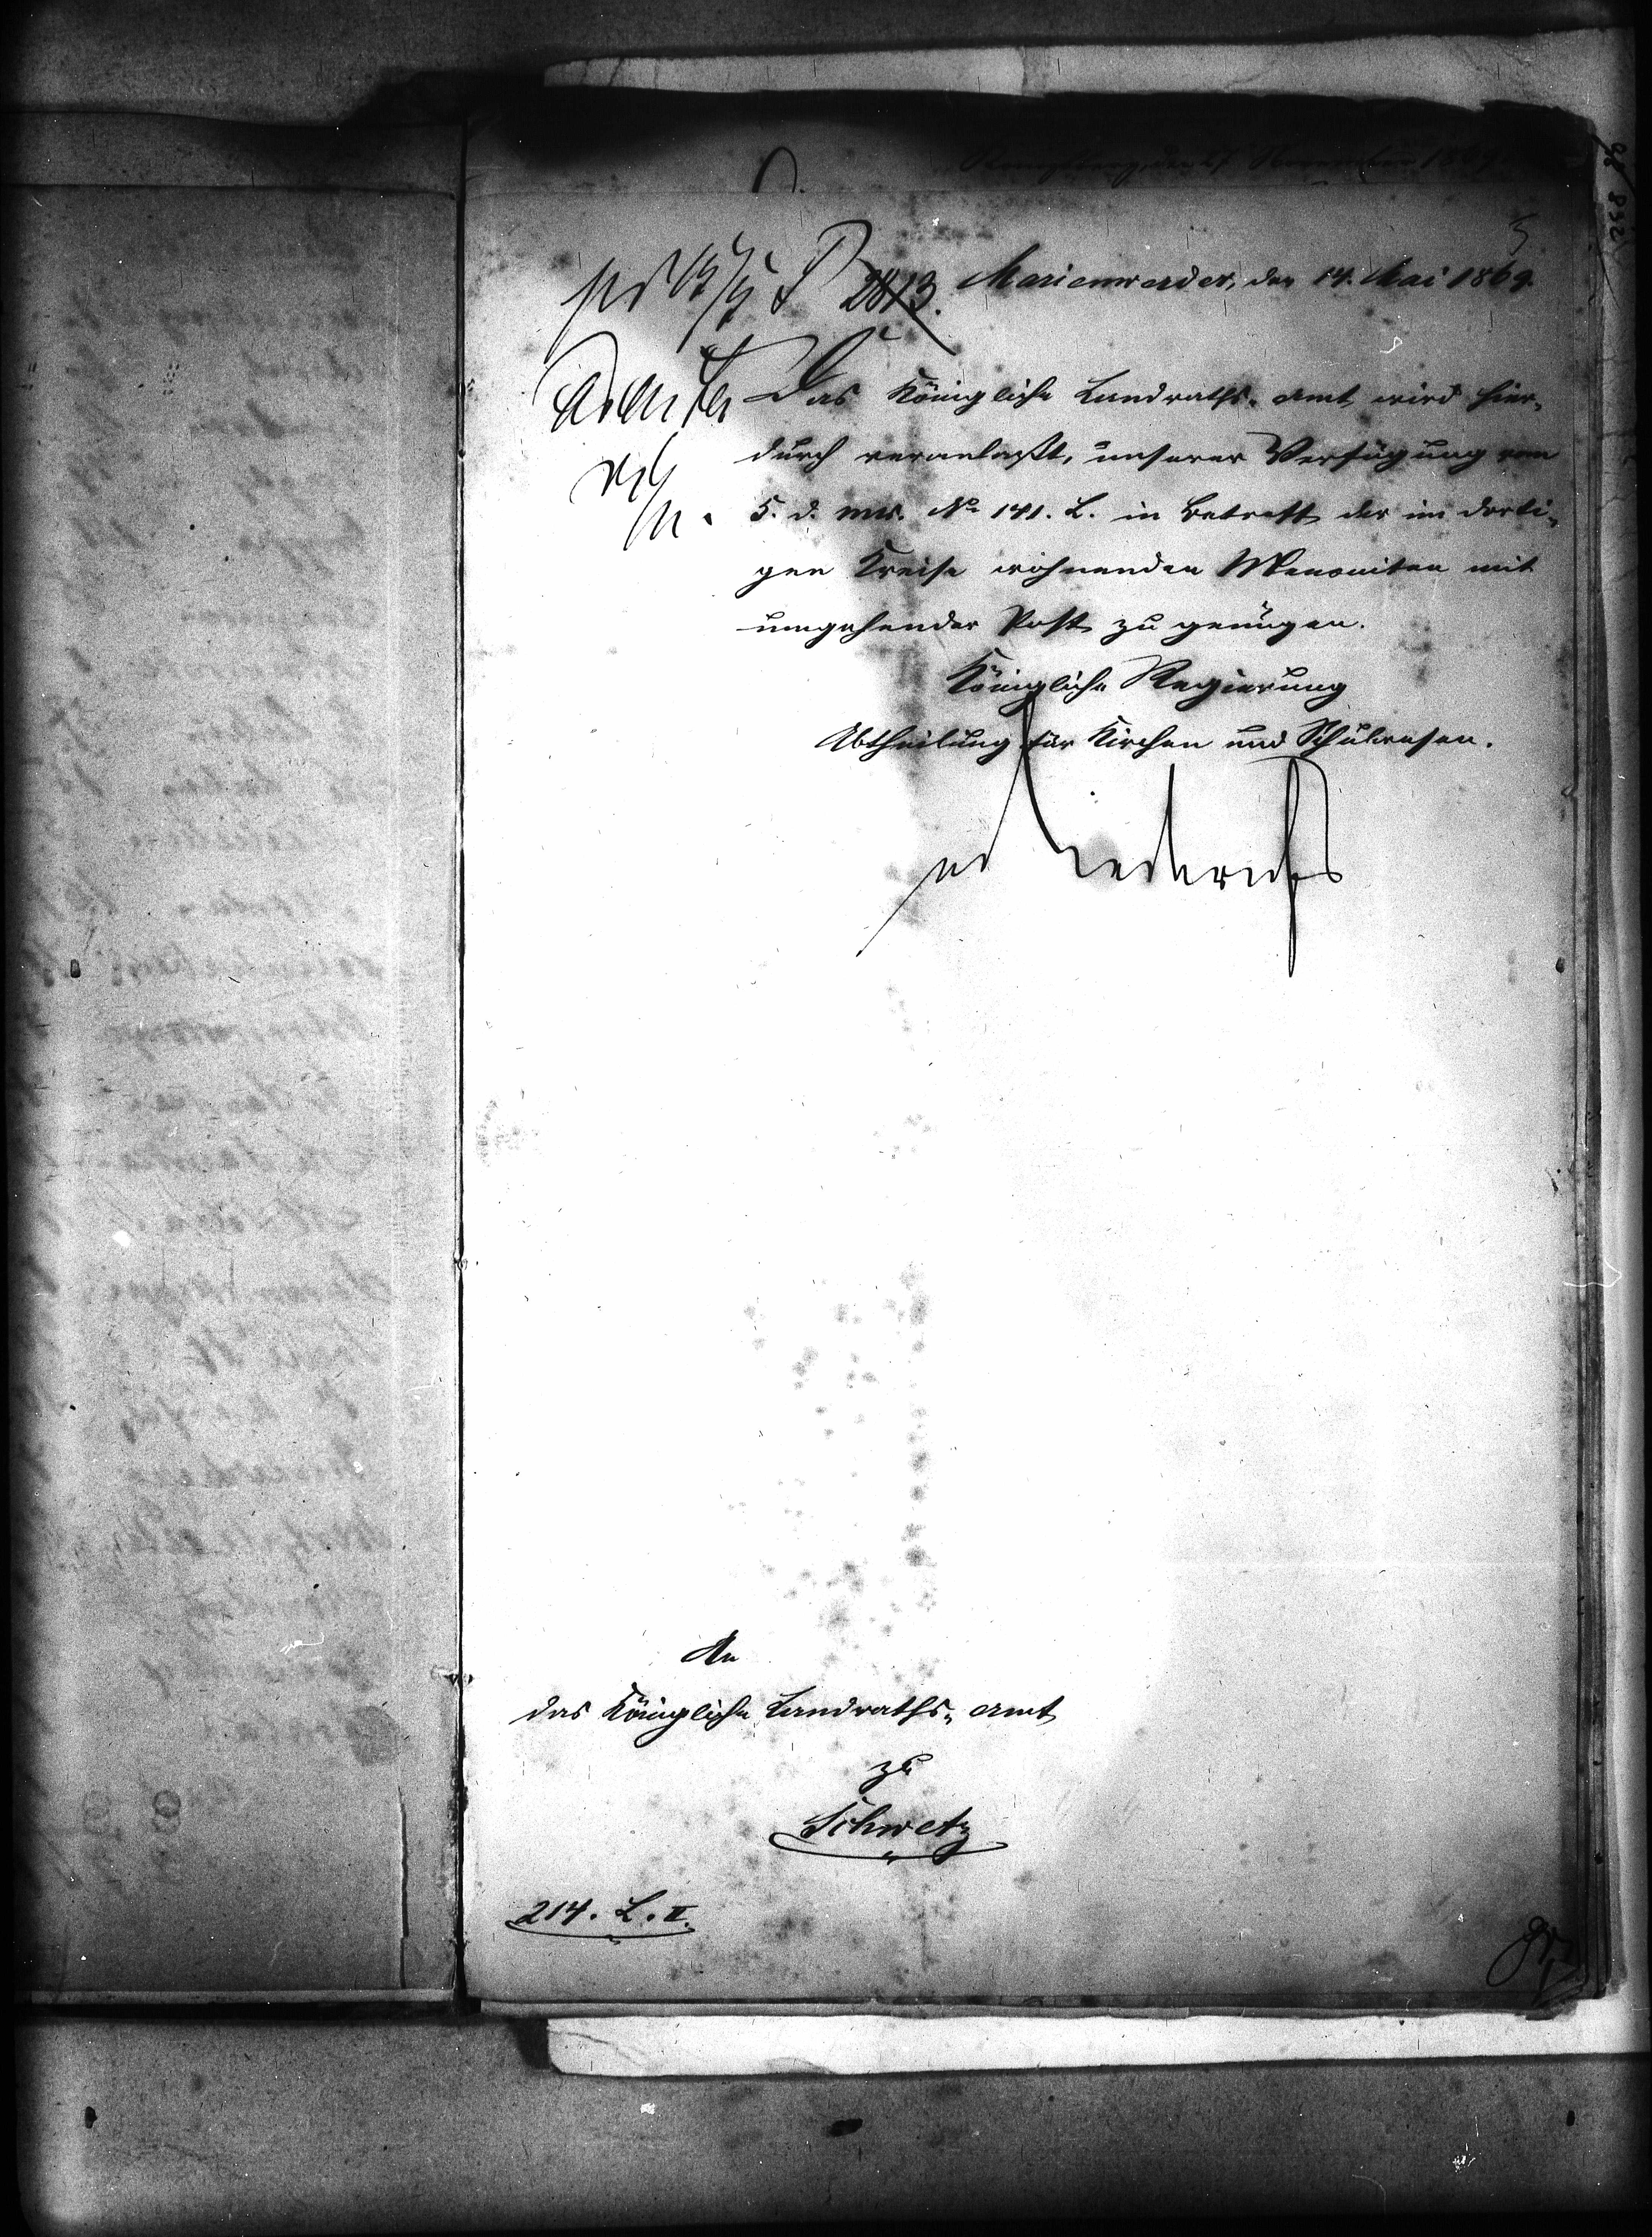 5
2813. Marienwerder, den 14. Mai 1869.
Das Königliche Landraths-Amt wird hier-
durch veranlaßt, unserer Verfügung vom
5. d. Mts. No 141. L. in Betreff der im dorti-
gen Kreise wohnenden Menoniten mit
umgehender Post zu genügen.
Königliche Regierung
Abtheilung für Kirchen und Schulwesen.
An
das Königliche Landraths-Amt
zu
Schwetz
214. L. II.